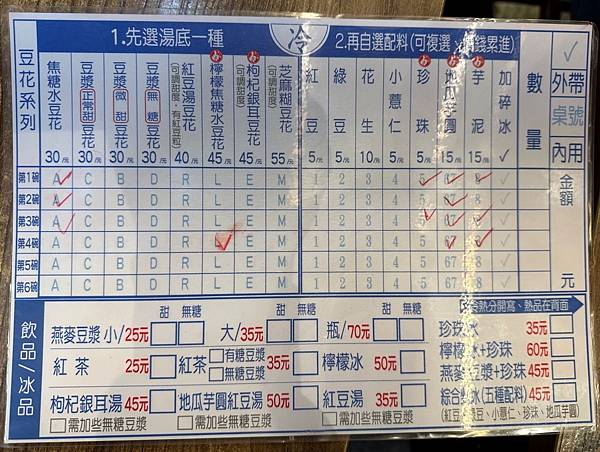 1.先選湯底一種
冷
2.再自選配料(可複選、價錢累進)
豆花系列
焦糖水豆花 30/元
豆漿正常甜豆花 30/元
豆漿微甜豆花 30/元
豆漿無糖豆花 30/元
紅豆湯豆花(可調甜度,有紅豆粒) 40/元
檸檬焦糖水豆花 45/元
枸杞銀耳豆花(可調甜度) 45/元
芝麻糊豆花(可調甜度) 55/元
紅豆 5/元
綠豆 5/元
花生 10/元
小薏仁 5/元
珍珠 5/元
地瓜芋圓 15/元
芋泥 15/元
加碎冰 ✓
數量
✓
外帶
桌號
內用
第1碗 A C B D R L E M 1 2 3 4 5 67 8 ✓
第2碗 A C B D R L E M 1 2 3 4 5 67 8 ✓
第3碗 A C B D R L E M 1 2 3 4 5 67 8 ✓
第4碗 A C B D R L E M 1 2 3 4 5 67 8 ✓
第5碗 A C B D R L E M 1 2 3 4 5 67 8 ✓
第6碗 A C B D R L E M 1 2 3 4 5 67 8 ✓
金額
元
飲品/冰品
甜 無糖 甜 無糖 甜 無糖
冷熱分開寫、熱品在背面
燕麥豆漿 小/25元 大/35元 瓶/70元 珍珠冰 35元
檸檬冰+珍珠 60元
紅茶 25元 紅茶 有糖豆漿 無糖豆漿 35元 檸檬冰 50元
燕麥豆漿+珍珠 45元
枸杞銀耳湯 45元 地瓜芋圓紅豆湯 50元 紅豆湯 35元 綜合 冰(五種配料)45元
需加些無糖豆漿 需加些無糖豆漿 需加些無糖豆漿 (紅豆、綠豆、小薏仁、珍珠、地瓜芋圓)